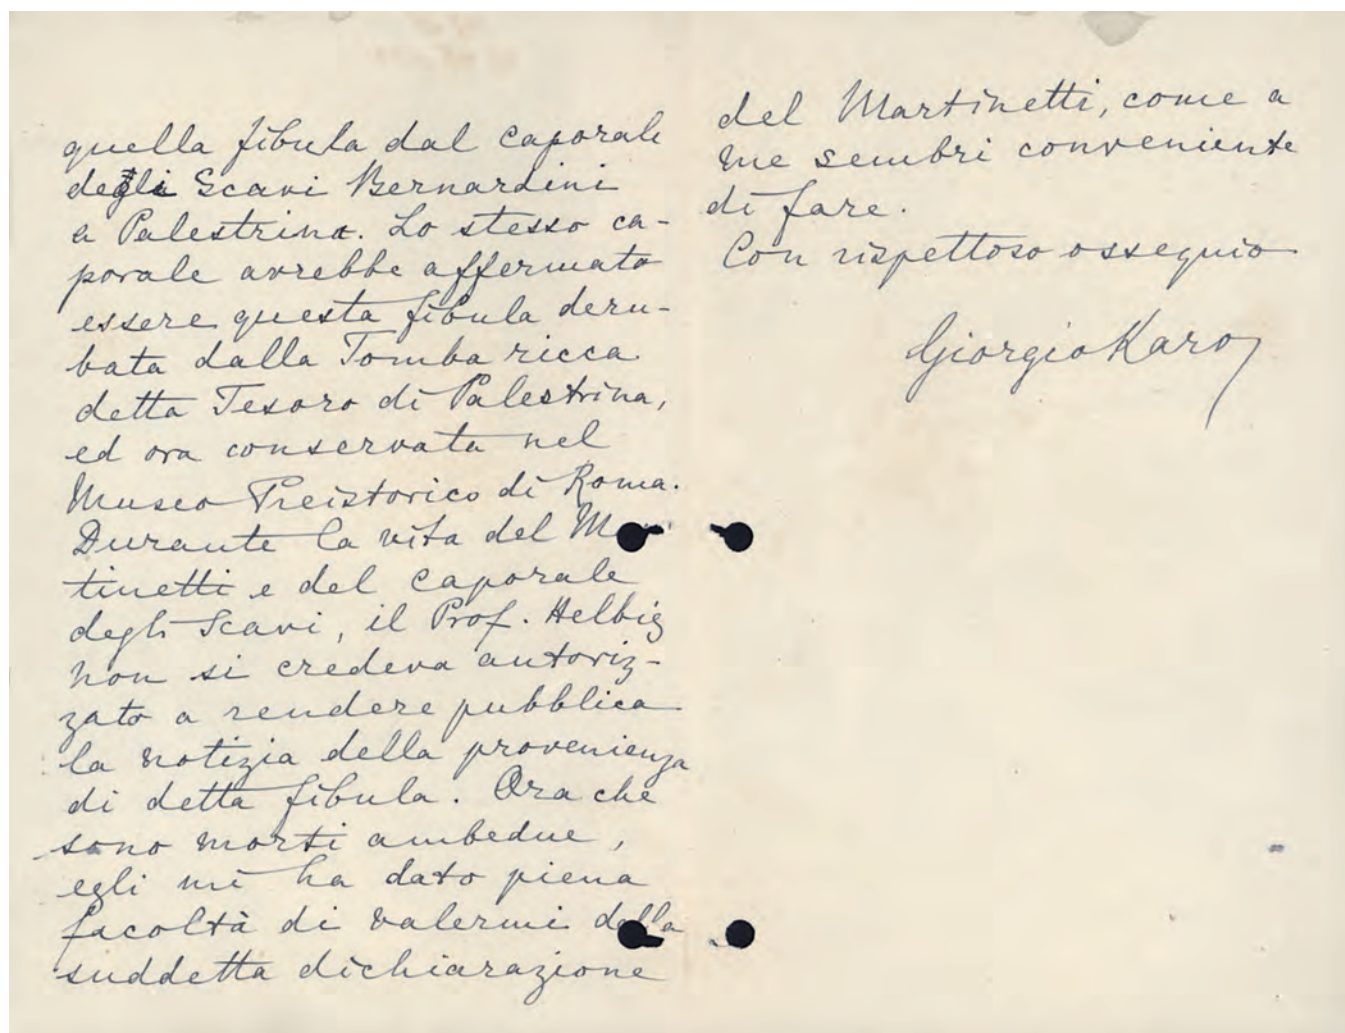 quella fibula dal caporale
degli Scavi Bernardini
a Palestrina. Lo stesso ca-
porale avrebbe affermato
essere questa fibula deru-
bata dalla Tomba ricca
detta Tesoro di Palestrina,
ed ora conservata nel
Museo Preistorico di Roma.
Durante la vita del Mar
tinetti e del caporale
degli Scavi, il Prof. Helbig
non si credeva autoriz-
zato a rendere pubblica
la notizia della provenienza
di detta fibula. Ora che
sono morti ambedue,
egli mi ha dato piena
facoltà di valermi della
suddetta dichiarazione
del Martinetti, come a
me sembri conveniente
di fare.
Con rispettoso ossequio
Giorgio Karo